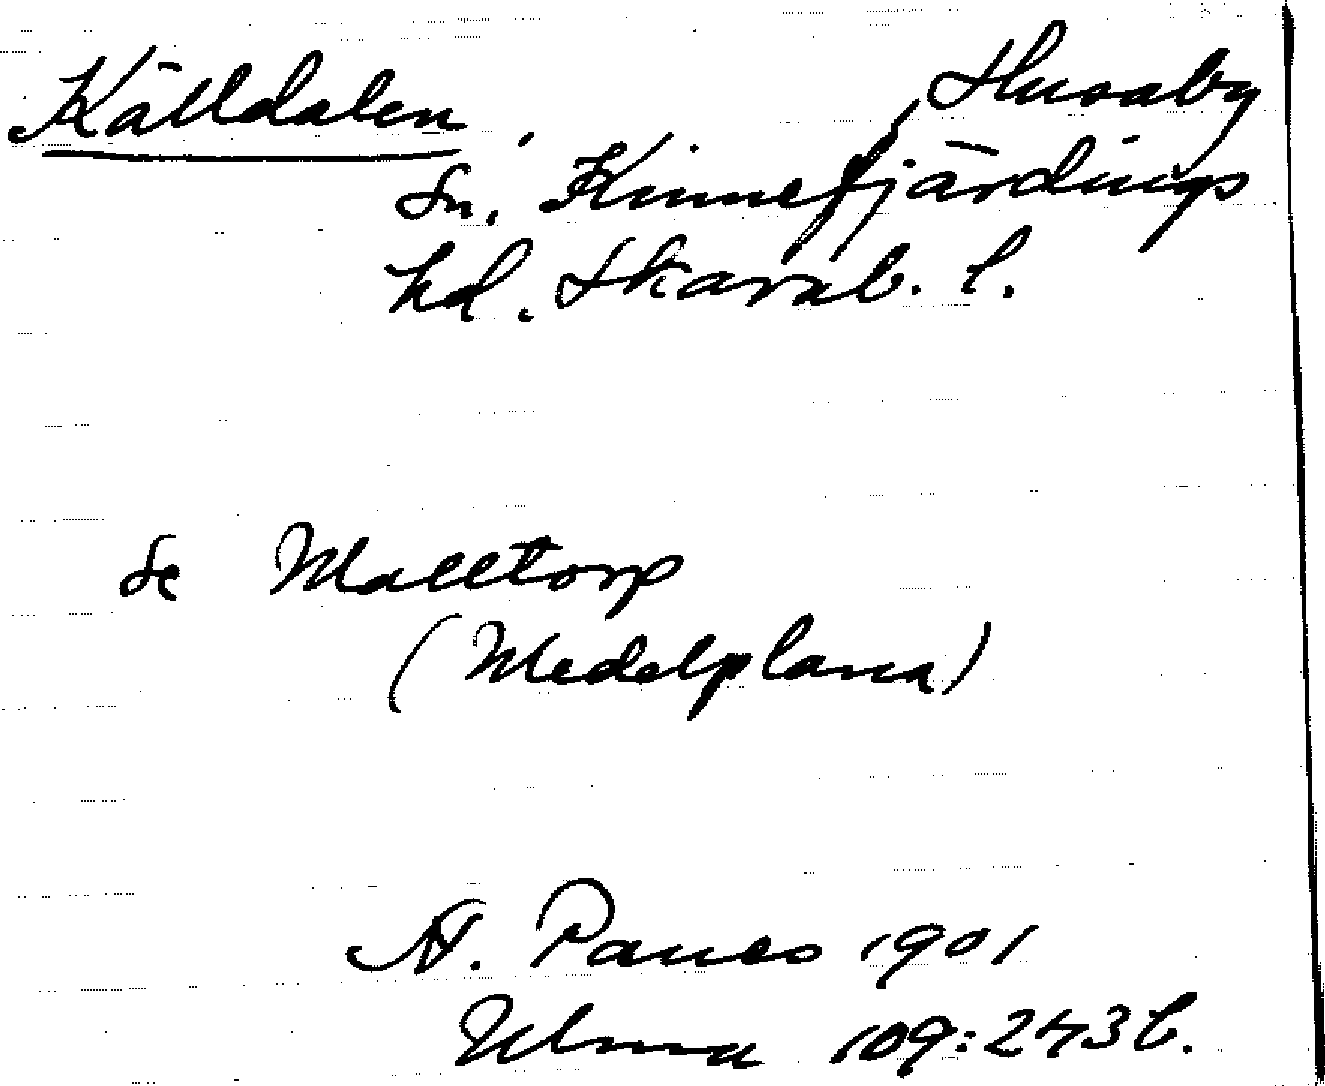 Källdalen, Husaby
sn. Kinnefjärdings
hd. Skarab. l.
Se Malltorp
(Medelplana)
A. Paues 1901
Ulma 109:243 b.